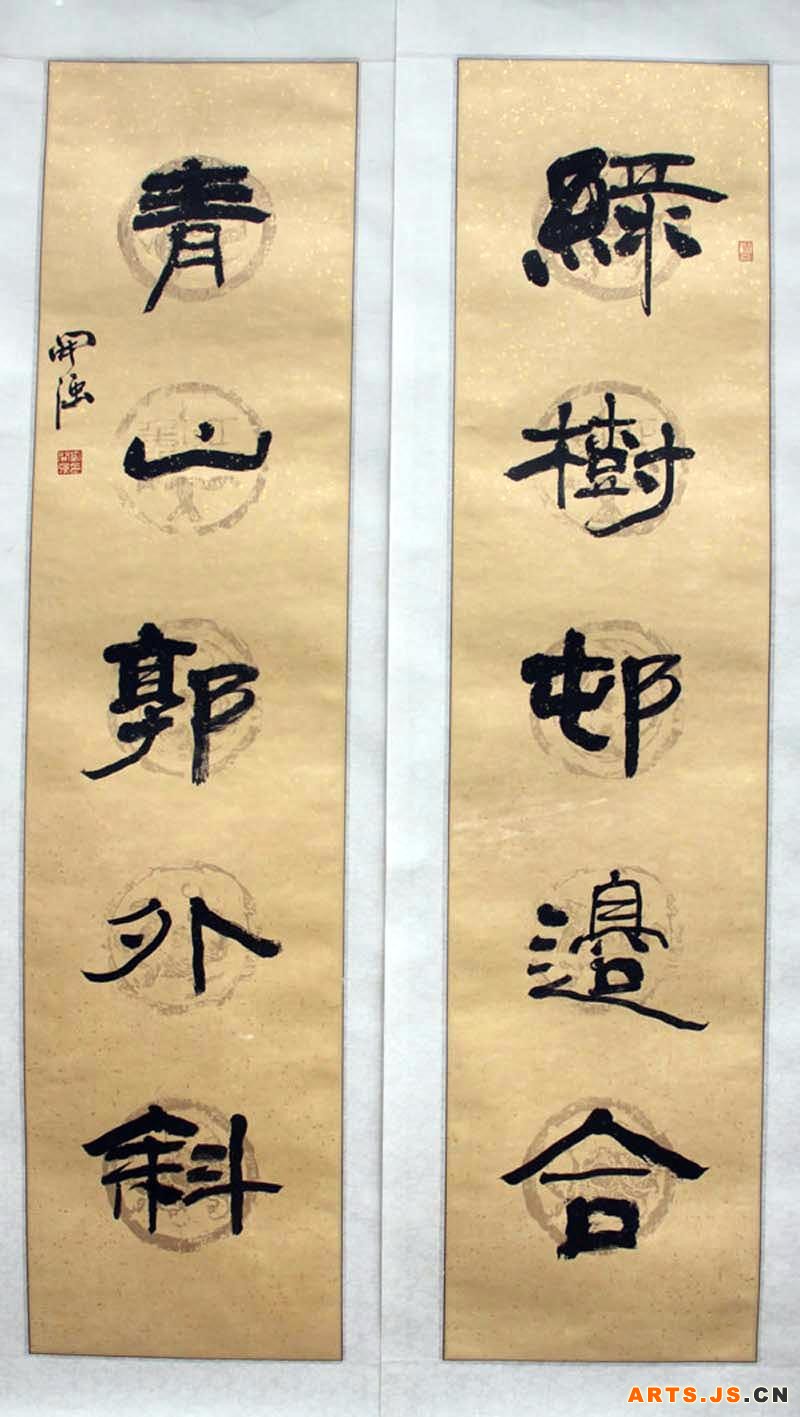 綠樹邨邊合
青山郭外斜
ARTS.JS.CN